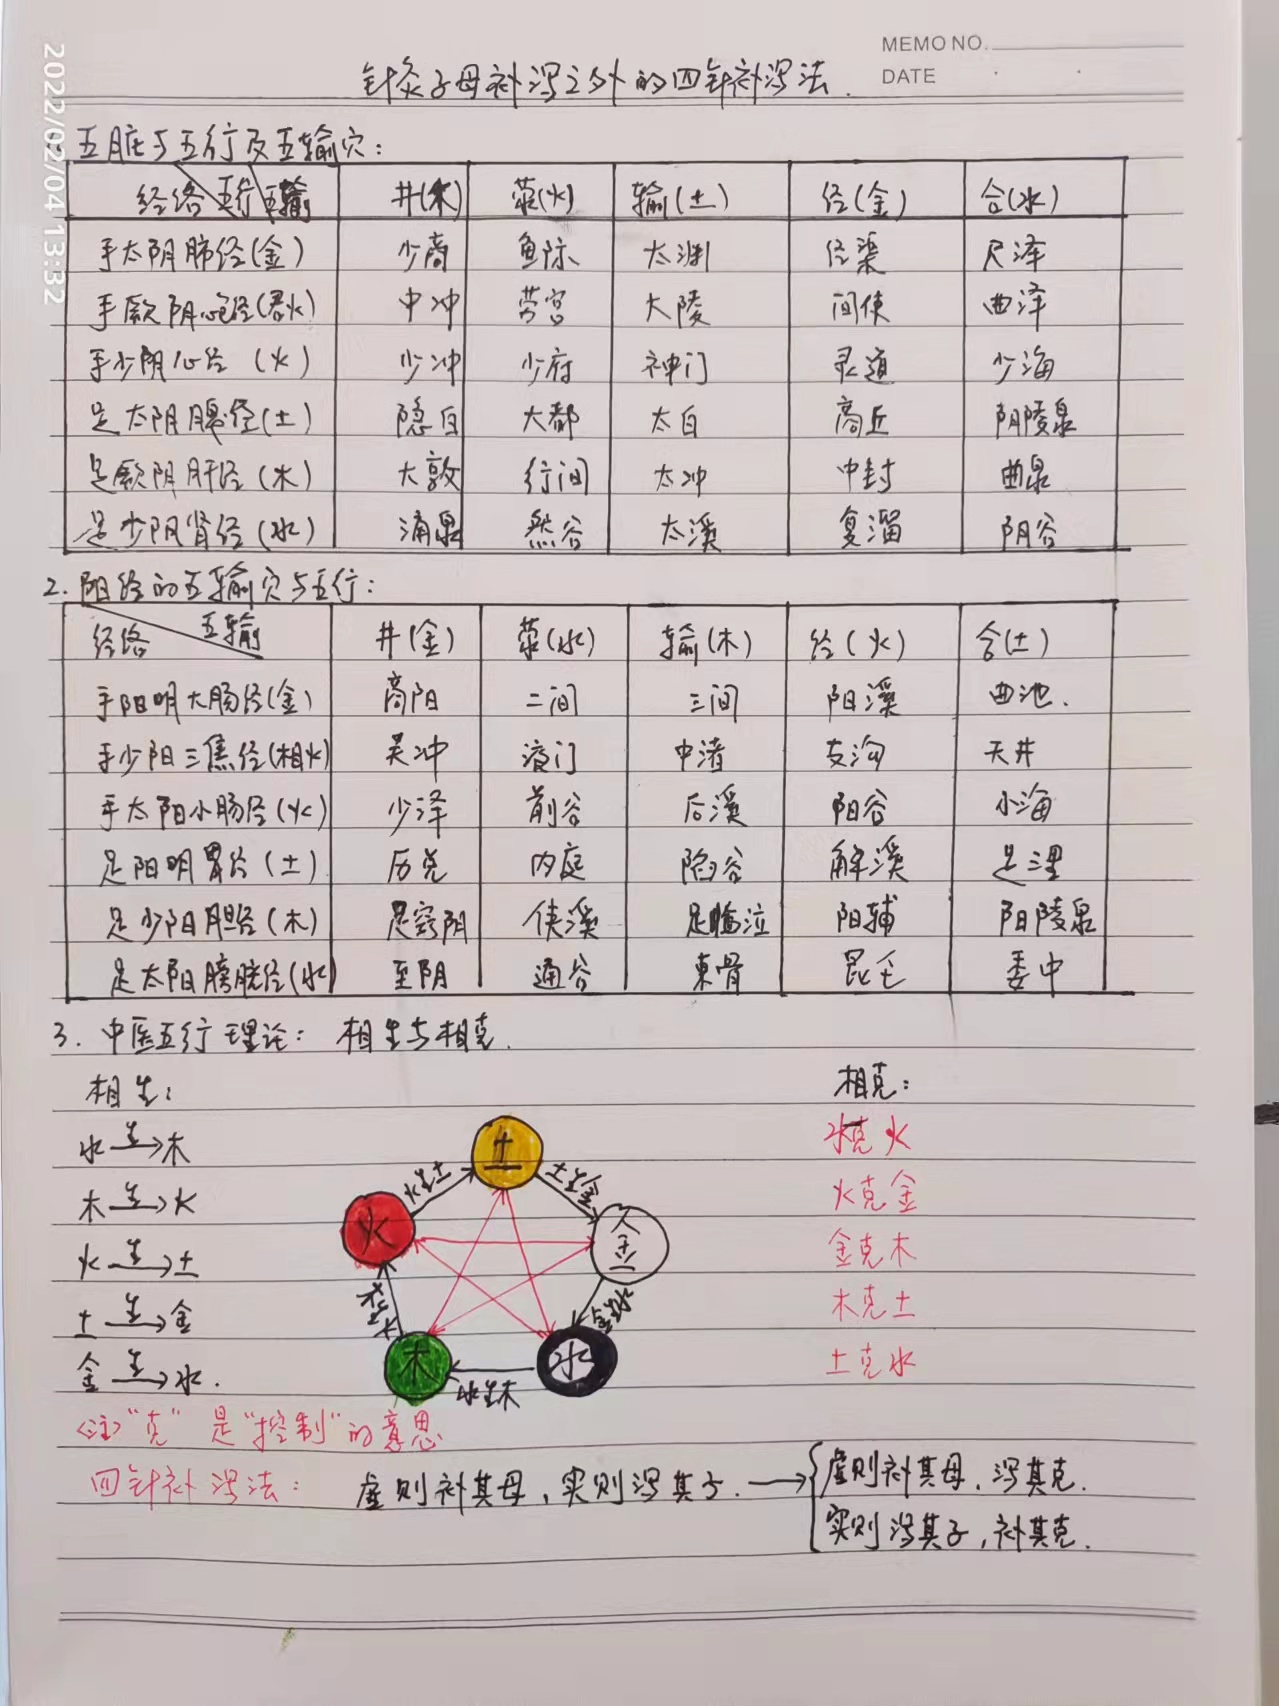 MEMO NO.
DATE
2022/02/04 13:32
针灸子母补泻之外的四针补泻法.
五脏与五行及五输穴:
经络 五行 五输 井(木) 荥(火) 输(土) 经(金) 合(水)
手太阴肺经(金) 少商 鱼际 太渊 经渠 尺泽
手厥阴心包经(君火) 中冲 劳宫 大陵 间使 曲泽
手少阴心经(火) 少冲 少府 神门 灵道 少海
足太阴脾经(土) 隐白 大都 太白 商丘 阴陵泉
足厥阴肝经(木) 大敦 行间 太冲 中封 曲泉
足少阴肾经(水) 涌泉 然谷 太溪 复溜 阴谷
2. 阳经的五输穴与五行:
经络 五输 井(金) 荥(水) 输(木) 经(火) 合(土)
手阳明大肠经(金) 商阳 二间 三间 阳溪 曲池.
手少阳三焦经(相火) 关冲 液门 中渚 支沟 天井
手太阳小肠经(火) 少泽 前谷 后溪 阳谷 小海
足阳明胃经(土) 历兑 内庭 陷谷 解溪 足三里
足少阳胆经(木) 足窍阴 侠溪 足临泣 阳辅 阳陵泉
足太阳膀胱经(水) 至阴 通谷 束骨 昆仑 委中
3. 中医五行理论: 相生与相克.
相生: 相克:
水生→木 水克火
木生→火 火克金
火生→土 金克木
土生→金 木克土
金生→水. 土克水
土
火生土 土生金
火 金
木生火 金生水
木 水
水生木
<注>"克"是"控制"的意思
四针补泻法: 虚则补其母,实则泻其子. → {虚则补其母,泻其克.
实则泻其子,补其克.